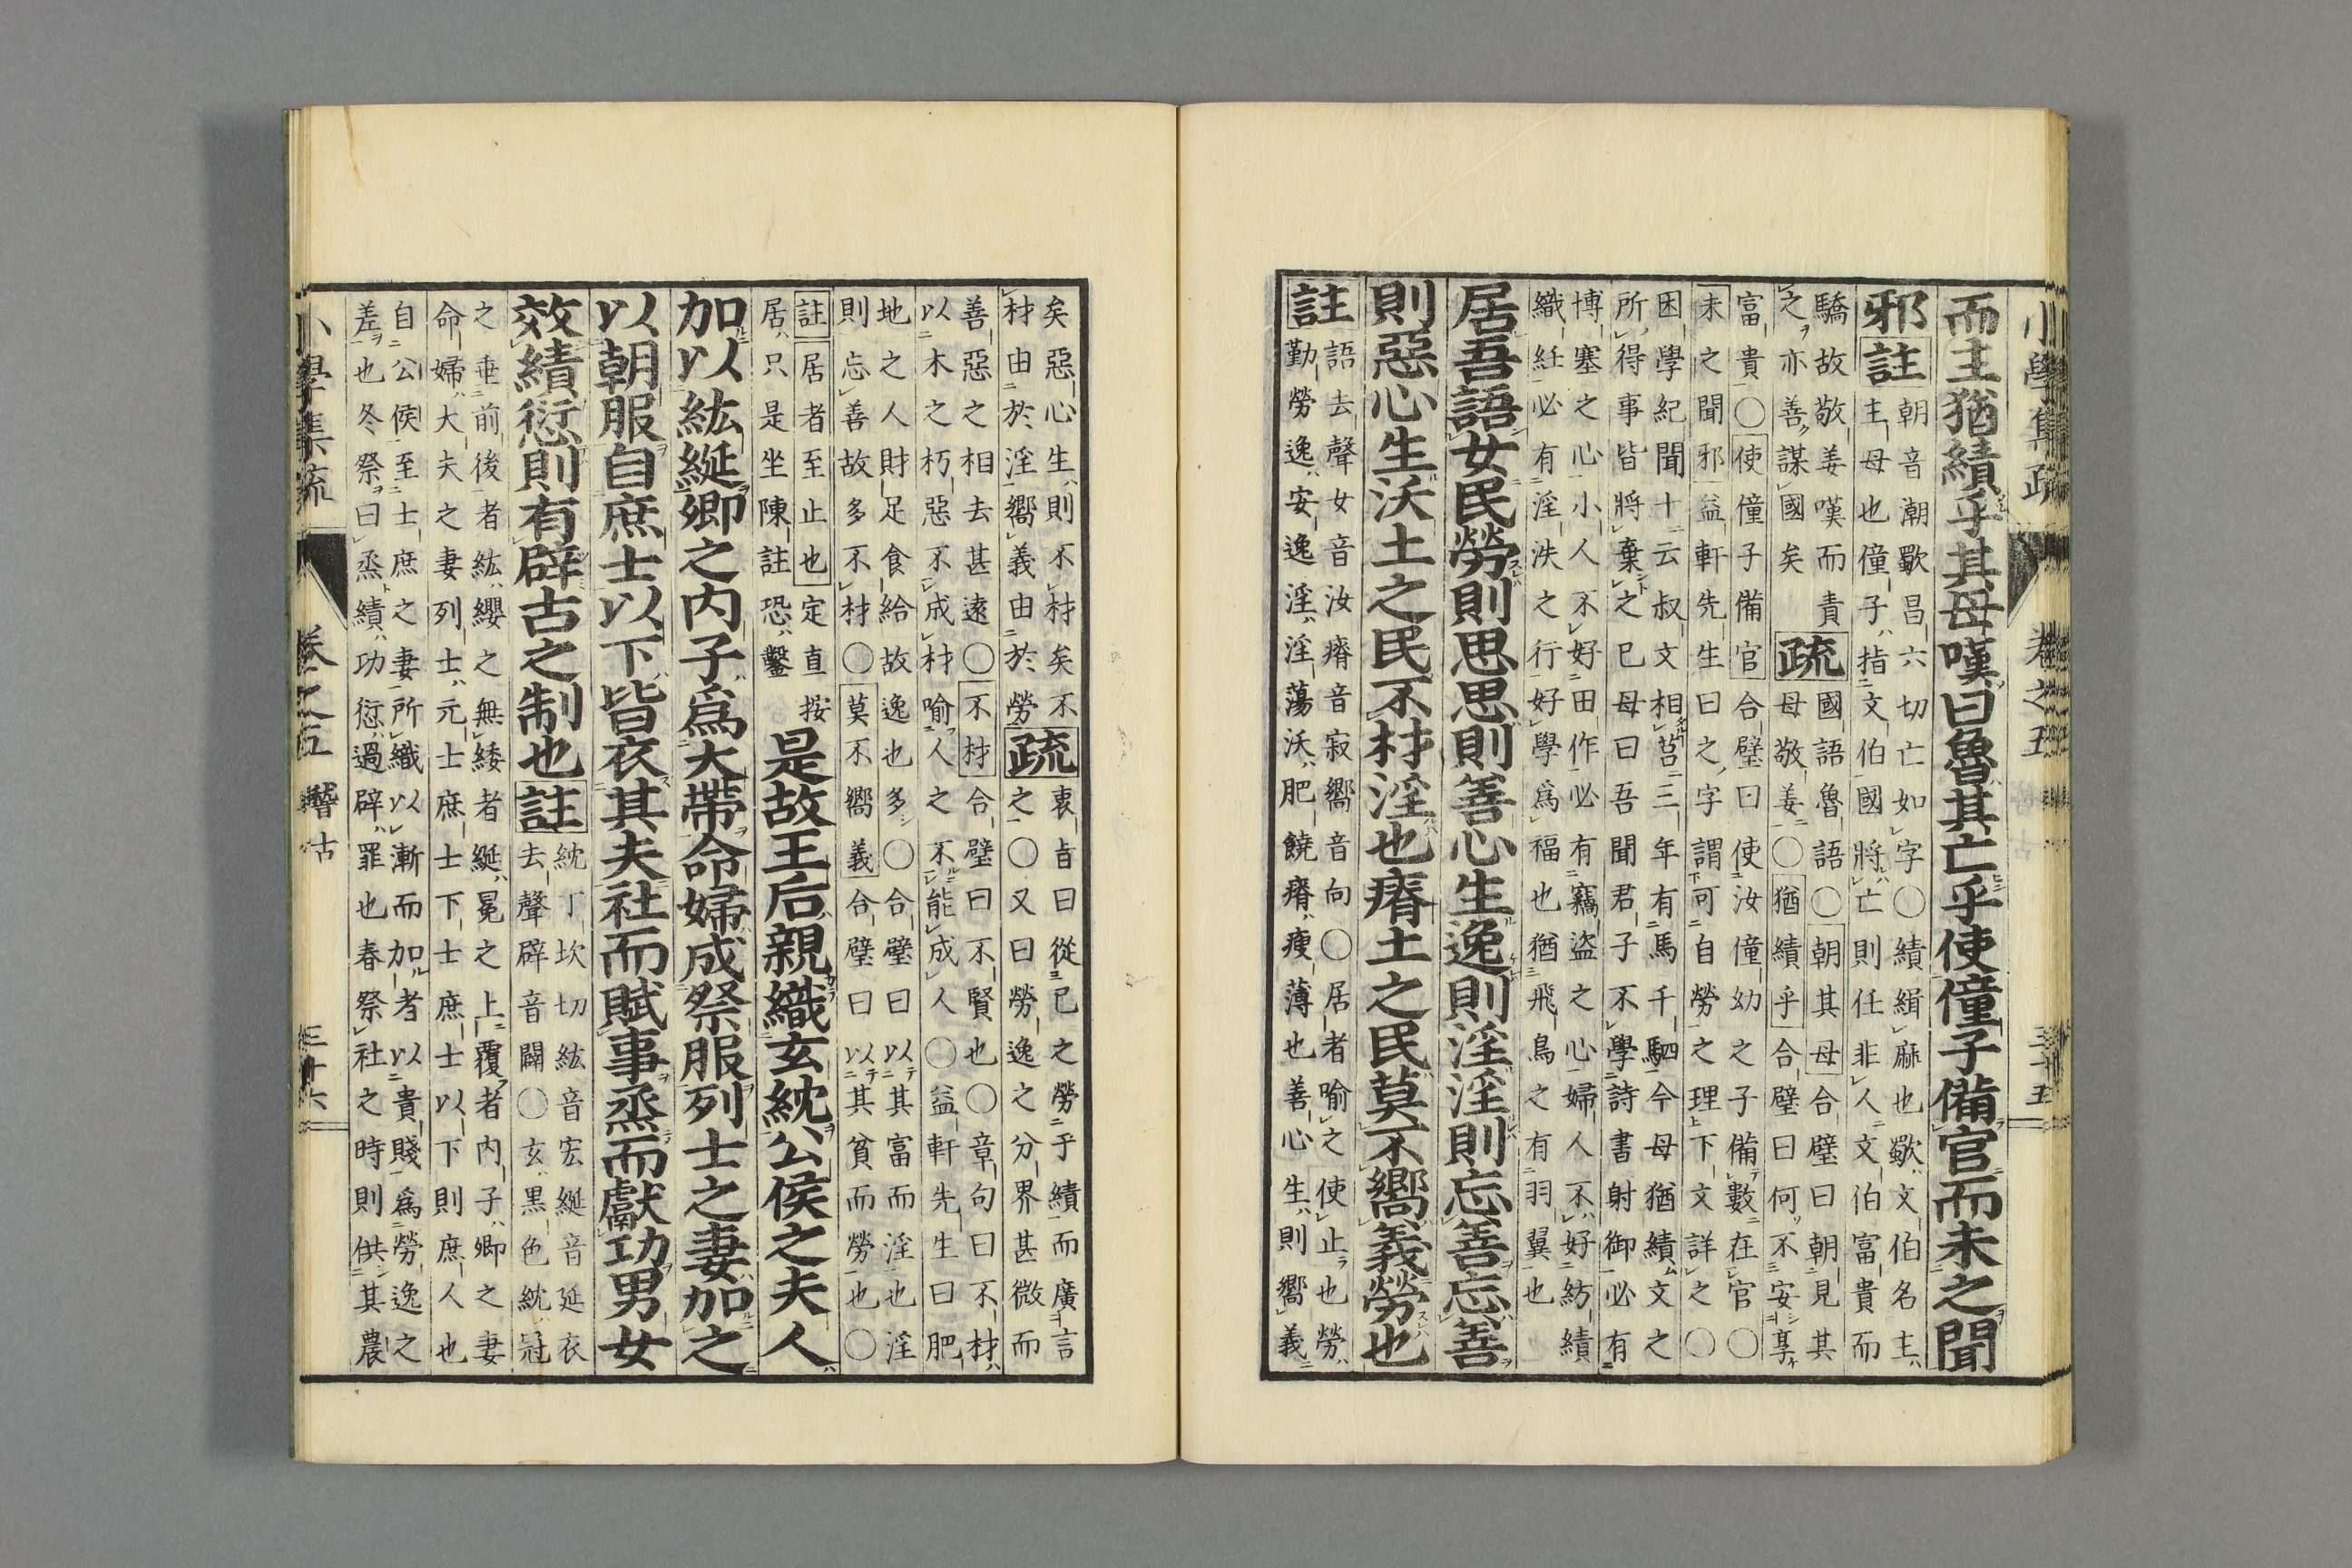 小學集疏 卷之五 三十五
而主猶績乎其母嘆曰魯其亡乎使僮子備官而未之聞
邪註朝音潮歜昌六切亡如字○績緝麻也歜文伯名主
主母也僮子指文伯國將亡則任非人文伯富貴而
驕故敬姜嘆而責疏國語魯語○朝其母合璧曰朝見其
之亦善謀國矣母敬姜○猶績乎合璧曰何不安享
富貴○使僮子備官合璧曰使汝僮幼之子備數在官○
未之聞邪益軒先生曰之字謂可自勞之理下文詳之○
困學紀聞十云叔文相莒三年有馬千駟今母猶績文之
所得事皆將棄之已母曰吾聞君子不學詩書射御必有
博塞之心小人不好田作必有竊盜之心婦人不好紡績
織紝必有淫泆之行好學爲福也猶飛鳥之有羽翼也
居吾語女民勞則思思則善心生逸則淫淫則忘善忘善
則惡心生沃土之民不材淫也瘠土之民莫不嚮義勞也
註語去聲女音汝瘠音寂嚮音向○居者喻之使止也勞
勤勞逸安逸淫淫蕩沃肥饒瘠瘦薄也善心生則嚮義
矣惡心生則不材矣不疏衷旨曰從已之勞于績而廣言
材由於淫嚮義由於勞之○又曰勞逸之分界甚微而
善惡之相去甚遠○不材合璧曰不賢也○章句曰不材
以木之朽惡不成材喻人之不能成人○益軒先生曰肥
地之人財足食給故逸也多○合璧曰以其富而淫也淫
則忘善故多不材○莫不嚮義合璧曰以其貧而勞也○
註居者至止也定直按
居只是坐陳註恐鑿
是故王后親織玄紞公侯之夫人
加以紘綖卿之内子爲大帶命婦成祭服列士之妻加之
以朝服自庶士以下皆衣其夫社而賦事烝而獻功男女
效績愆則有辟古之制也註紞丁坎切紘音宏綖音延衣
去聲辟音闢○玄黑色紞冠
之垂前後者紘纓之無緌者綖冕之上覆者内子卿之妻
命婦大夫之妻列士元士庶士下士庶士以下則庶人也
自公侯至士庶之妻所織以漸而加者以貴賤爲勞逸之
差也冬祭曰烝績功愆過辟罪也春祭社之時則供其農
小學集疏 卷之五 稽古 三十六